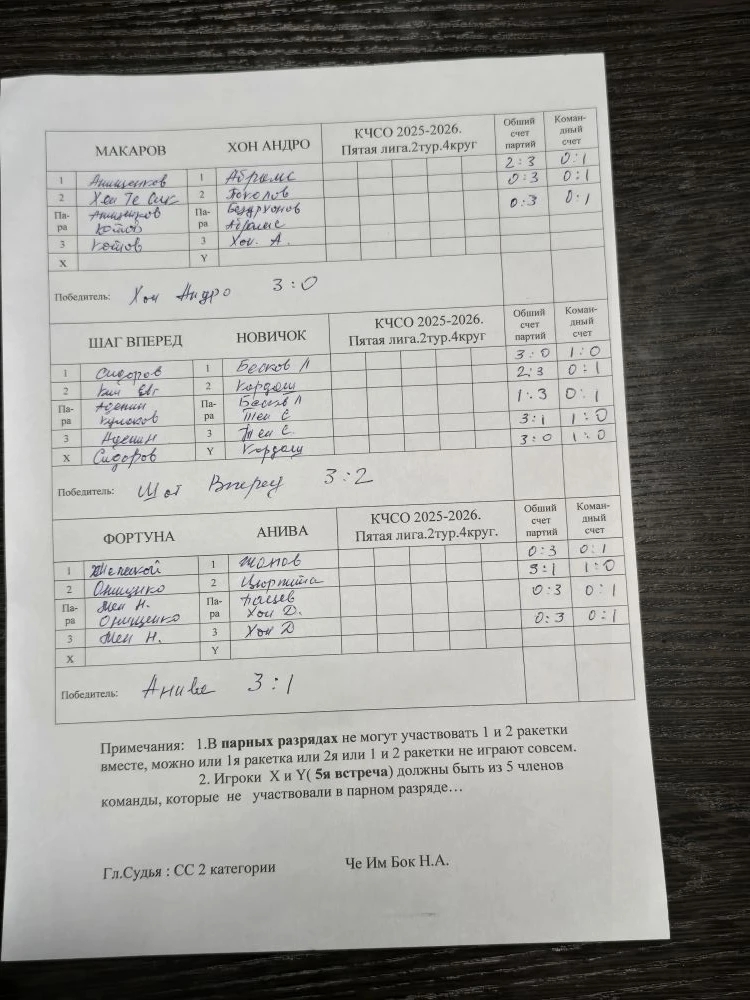 МАКАРОВ ХОН АНДРО КЧСО 2025-2026. Пятая лига.2тур.4круг Общий счет партий Коман-дный счет
2:3 0:1
1 Анищенков 1 Абрамс 0:3 0:1
2 Хен Те Сик 2 Соколов 0:3 0:1
Па-ра Анищенков Па-ра
Котов Абрамс
3 Котов 3 Хон. А.
X Y
Победитель: Хон Андро 3:0
ШАГ ВПЕРЕД НОВИЧОК КЧСО 2025-2026. Пятая лига.2тур.4круг Общий счет партий Коман-дный счет
3:0 1:0
1 Сидоров 1 Бесков Л 2:3 0:1
2 Ким Евг 2 Кордаш 1:3 0:1
Па-ра Аденин Па-ра Бесков Л
Куликов Тен С 3:1 1:0
3 Аденин 3 Тен С. 3:0 1:0
X Сидоров Y Кордаш
Победитель: Шаг Вперед 3:2
ФОРТУНА АНИВА КЧСО 2025-2026. Пятая лига.2тур.4круг. Общий счет партий Коман-дный счет
0:3 0:1
1 1 3:1 1:0
2 Онищенко 2 0:3 0:1
Па-ра Мен Н. Па-ра
Онищенко Хон Д. 0:3 0:1
3 Мен Н. 3 Хон Д
X Y
Победитель: Анива 3:1
Примечания: 1.В парных разрядах не могут участвовать 1 и 2 ракетки
вместе, можно или 1я ракетка или 2я или 1 и 2 ракетки не играют совсем.
2. Игроки X и Y( 5я встреча) должны быть из 5 членов
команды, которые не участвовали в парном разряде…
Гл.Судья : СС 2 категории Че Им Бок Н.А.